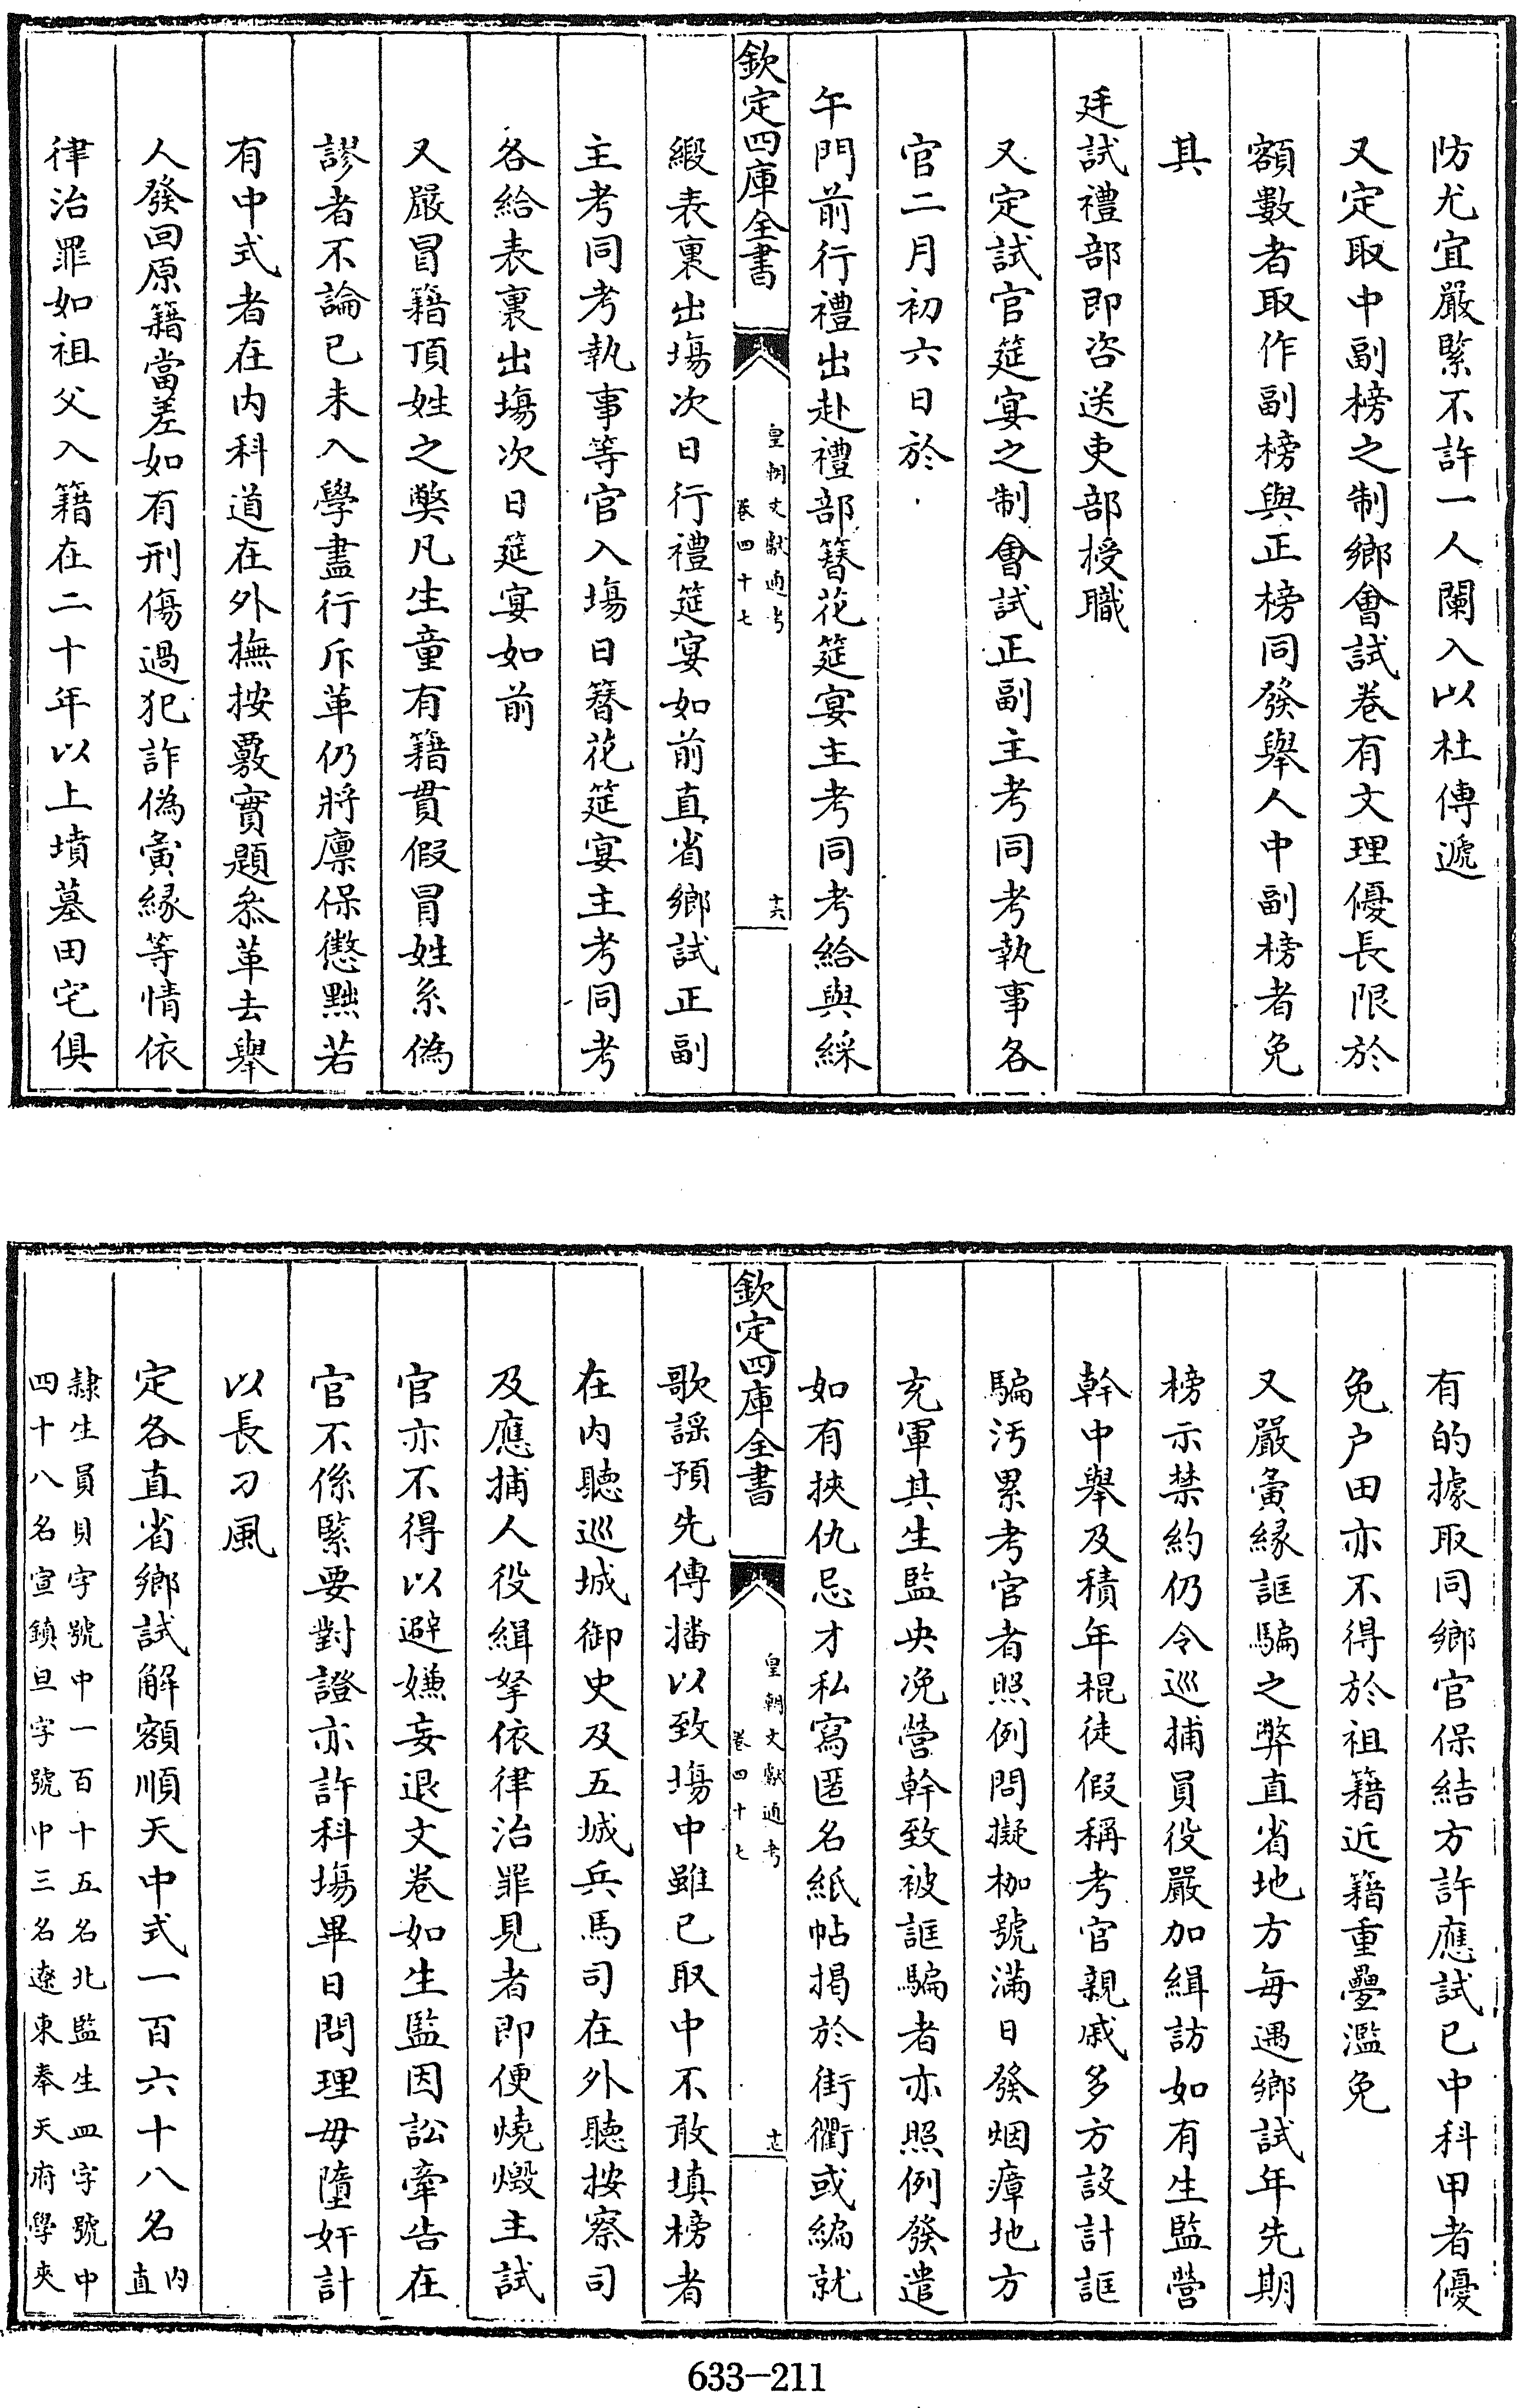 防尤宜嚴緊不許一人闌入以杜傳遞
又定取中副榜之制鄉會試卷有文理優長限於
額數者取作副榜與正榜同發舉人中副榜者免
其
廷試禮部即咨送吏部授職
又定試官筵宴之制會試正副主考同考執事各
官二月初六日於
午門前行禮出赴禮部簪花筵宴主考同考給與綵
欽定四庫全書
皇朝文獻通考
卷四十七
十六
緞表裏出塲次日行禮筵宴如前直省鄉試正副
主考同考執事等官入塲日簪花筵宴主考同考
各給表裏出塲次日筵宴如前
又嚴冒籍頂姓之獘凡生童有籍貫假冒姓系偽
謬者不論已未入學盡行斥革仍將廪保懲黜若
有中式者在内科道在外撫按覈實題叅革去舉
人發回原籍當差如有刑傷過犯詐偽夤緣等情依
律治罪如祖父入籍在二十年以上墳墓田宅俱
有的據取同鄉官保結方許應試已中科甲者優
免户田亦不得於祖籍近籍重疊濫免
又嚴夤緣誆騙之弊直省地方每遇鄉試年先期
榜示禁約仍令巡捕員役嚴加緝訪如有生監營
幹中舉及積年棍徒假稱考官親戚多方設計誆
騙汚累考官者照例問擬枷號滿日發烟瘴地方
充軍其生監央浼營幹致被誆騙者亦照例發遣
如有挾仇忌才私寫匿名紙帖揭於街衢或編就
欽定四庫全書
皇朝文獻通考
卷四十七
十七
歌謡預先傳播以致塲中雖已取中不敢填榜者
在内聽巡城御史及五城兵馬司在外聽按察司
及應捕人役緝拏依律治罪見者即便燒燬主試
官亦不得以避嫌妄退文卷如生監因訟牽告在
官不係緊要對證亦許科塲畢日問理毋墮奸計
以長刁風
定各直省鄉試解額順天中式一百六十八名内直
隸生員貝字號中一百十五名北監生皿字號中
四十八名宣鎮旦字號中三名遼東奉天府學夾
633-211